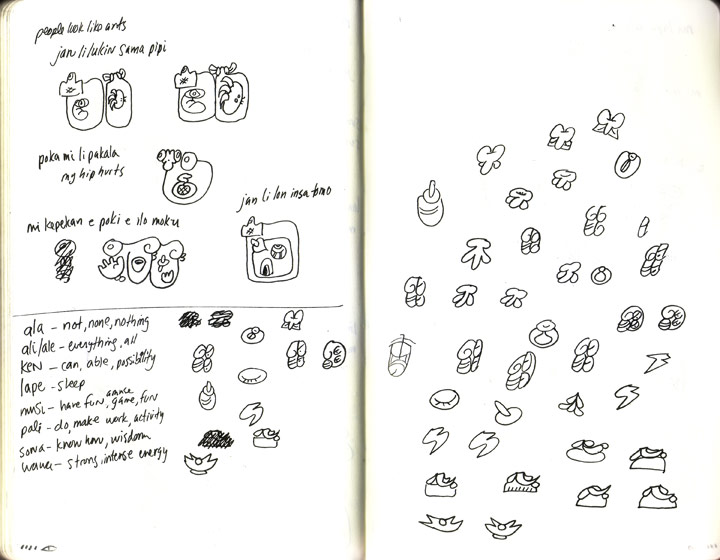 people look like ants
jan li lukin sama pipi
poka mi li pakala
my hip hurts
jan li lon insa tomo
mi kepeken e poki e ilo moku
ala - not, none, nothing
ali/ale - everything, all
ken - can, able, possibility
lape - sleep
musi - have fun, game, fun
pali - do, make work, activity
sona - know how, wisdom
wawa - strong, intense energy